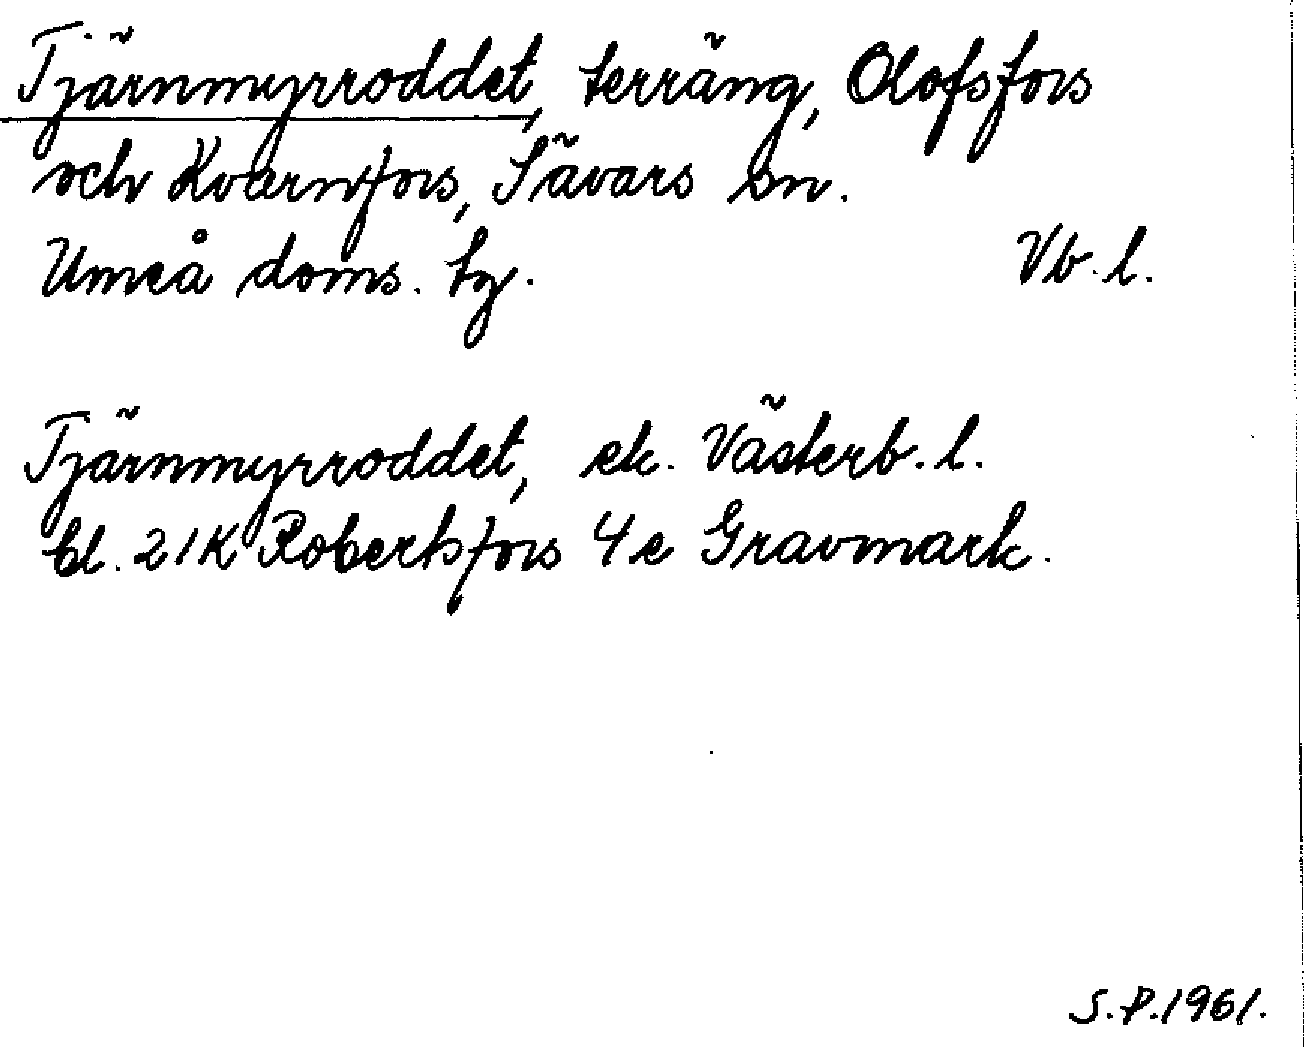 Tjärnmyrroddet, terräng, Olofsfors
och Kvarnfors, Sävars sn.
Umeå doms. tg. Vb. l.
Tjärnmyrroddet, ek. Västerb. l.
bl. 21K Robertsfors 4e Gravmark.
S.P. 1961.